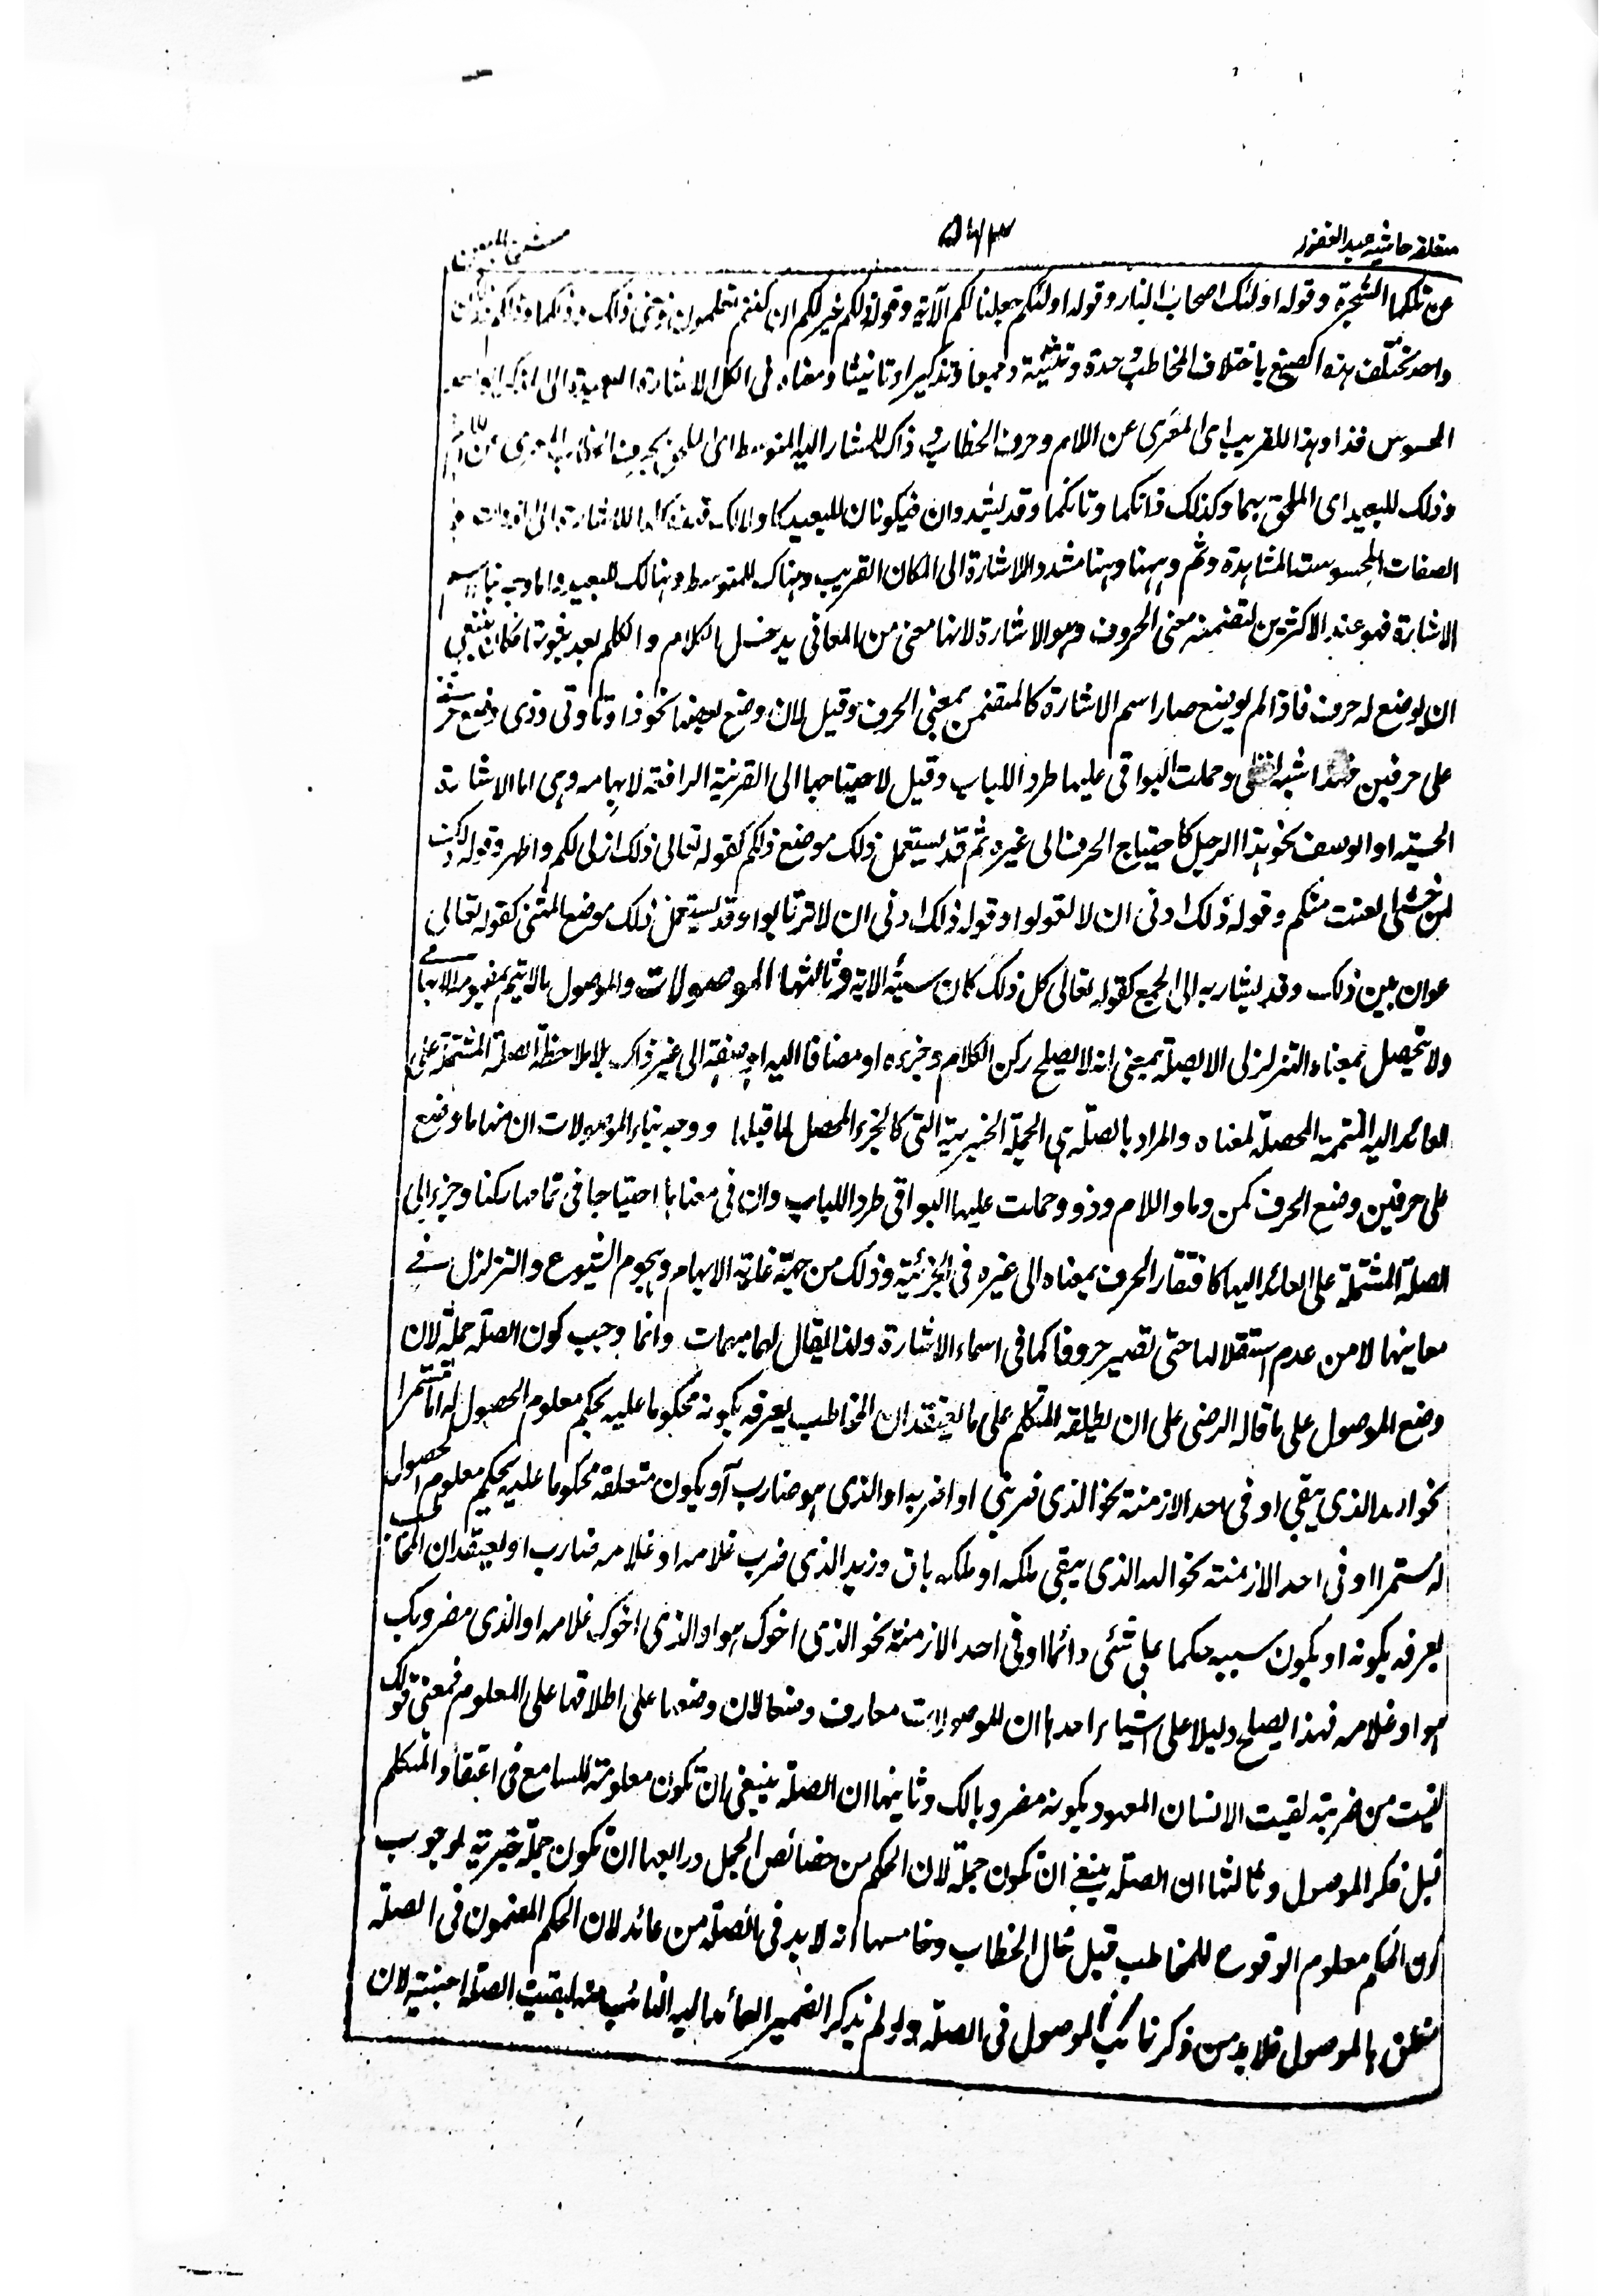 متعلقه حاشیه عبد الغفور
عن تلكما الشجرة وقوله اولئك اصحاب النار وقوله اولئكم جعلنا لكم الآية وقوله ذلكم خير لكم ان كنتم تعلمون ففى ذلك وذلكما وذلكم
واحد تختلف هذه الصيغ باختلاف المخاطب وحدة وتثنية وجمعا وتذكيرا وتانيثا ومعناه فى الكل الاشارة البعيدة الى
المحسوس فذا وهذا للقريب اى المعرى عن اللام وحرف الخطاب وذاك للمشار اليه المتوسط اى الملحق بحرف
وذلك للبعيد اى الملحق بهما وكذلك ذانكما وتانكما وقد يشددان فيكونان للبعيد للاشارة الى
الصفات المحسوسة المشاهدة وثم وههنا وهنا مشدد اللاشارة الى المكان القريب وهناك للمتوسط وهنالك للبعيد واما وجه بناء اسم
الاشارة فهو عند الاكثرين لتضمنه معنى الحروف وهو الاشارة لانها معنى من المعانى يدخل الكلام والكلم بعد ثبوتها فكان ينبغى
ان يوضع له حرف فاذا لم يوضع صار اسم الاشارة كالمتضمن بمعنى الحرف وقيل لان وضع بعضها نحو ذا وتا وتى وذى وضع
على حرفين وحملت البواقى عليها طرد اللباب وقيل لاحتياجها الى القرينة الرافعة لابهامه وهى اما الاشارة
الحسيه او الوصف نحو هذا الرجل كاحتياج الحرف الى غيره ثم قد يستعمل ذلك موضع ذلكم كقوله تعالى ذلك ازكى لكم واطهر وقوله ذلك
لمن خشى العنت منكم وقوله ذلك ادنى ان لا تعولوا وقوله ذلك ادنى ان لا ترتابوا وقد يستعمل ذلك موضع المثنى كقوله تعالى
عوان بين ذلك وقد يشار به الى الجمع كقوله تعالى كل ذلك كان سيئه الاية وثالثها الموصولات والموصول مالا يتم مفهومه الابهامى
ولا يتحصل بمعناه المتزلزل الا بصلة بمعنى انه لا يصلح ركن الكلام وجزءه او مضافا اليه او صفة الى غير ذلك بلا ملاحظة الصلة المشتملة على
العائد اليه المتممة المحصلة لمعناه والمراد بالصلة هى الجملة الخبرية التى كالجزء المحصل لما قبلها ووجه بناء الموصولات ان منها ما وضع
على حرفين وضع الحرف كمن وما واللام وذو وحملت عليها البواقى طرد اللباب وان فى معناها احتياجا فى تمامها ركنا وجزءا الى
الصلة المشتملة على العائد اليها كافتقار الحرف بمعناه الى غيره فى الجزئية وذلك من جهة غاية الابهام وهجوم الشيوع والتزلزل فى
معاينها لا من عدم استقلالها حتى تصير حروفا كما فى اسماء الاشارة ولذا يقال لهما مبهمات وانما وجب كون الصلة جملة لان
وضع الموصول على ما قاله الرضى على ان يطلقه المتكلم على ما يعتقد ان المخاطب يعرفه بكونه محكوما عليه بحكم معلوم الحصول له اما مستمرا
نحو الله الذى يبقى او فى احد الازمنة نحو الذى ضربنى او اضربه او الذى هو ضارب آو يكون متعلقه محكوما عليه بحكم معلوم الحصول
له مستمرا او فى احد الازمنة نحو الله الذى يبقى ملكه او ملكه باق وزيد الذى ضرب غلامه او غلامه ضارب او يعتقد ان المخاطب
يعرفه بكونه او بكون سببه حكما على شئى دائما او فى احد الازمنة نحو الذى اخوك هو او الذى اخوك غلامه او الذى مضروبك
هو او غلامه فهذا يصلح دليلا على اشياء احدها ان الموصولات معارف وضعا لان وضعها على اطلاقها على المعلوم فمعنى قولك
لقيت من ضربته لقيت الانسان المعهود بكونه مضروبا لك وثانيها ان الصلة ينبغى ان تكون معلومة للسامع فى اعتقاد المتكلم
قبل ذكر الموصول وثالثها ان الصلة ينبغى ان تكون جملة لان الحكم من خصائص الجمل ورابعها ان تكون جملة خبرية لوجوب
كون الحكم معلوم الوقوع للمخاطب قبل حال الخطاب وخامسها انه لا بد فى الصلة من عائد لان الحكم المضمون فى الصلة
متعلق بالموصول فلا بد من ذكر نائب الموصول فى الصلة ولو لم يذكر الضمير العائد اليه النائب عنه لبقيت الصلة اجنبية لان